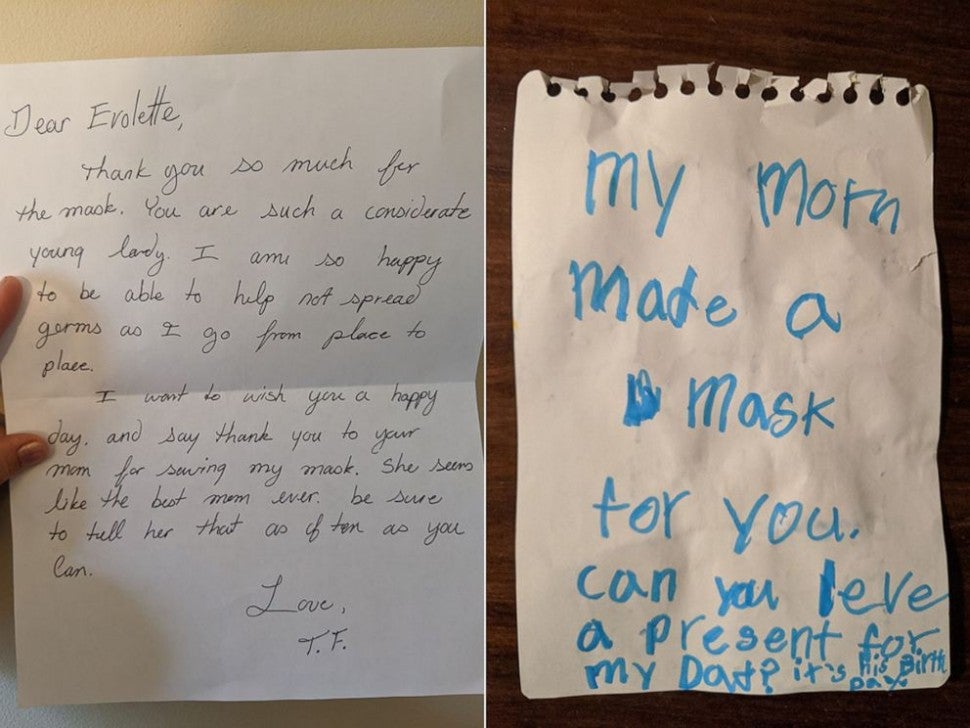 Dear Evolette,
thank you so much for
the mask. You are such a considerate
young lady. I am so happy
to be able to help not spread
germs as I go from place to
place.
I want to wish you a happy
day. and say thank you to your
mom for sewing my mask. She seems
like the best mom ever. be sure
to tell her that as often as you
can.
Love,
T.F.
My Mom
Made a
Mask
for you.
can you leve
a present for
my Dad? it's His Birth
Day